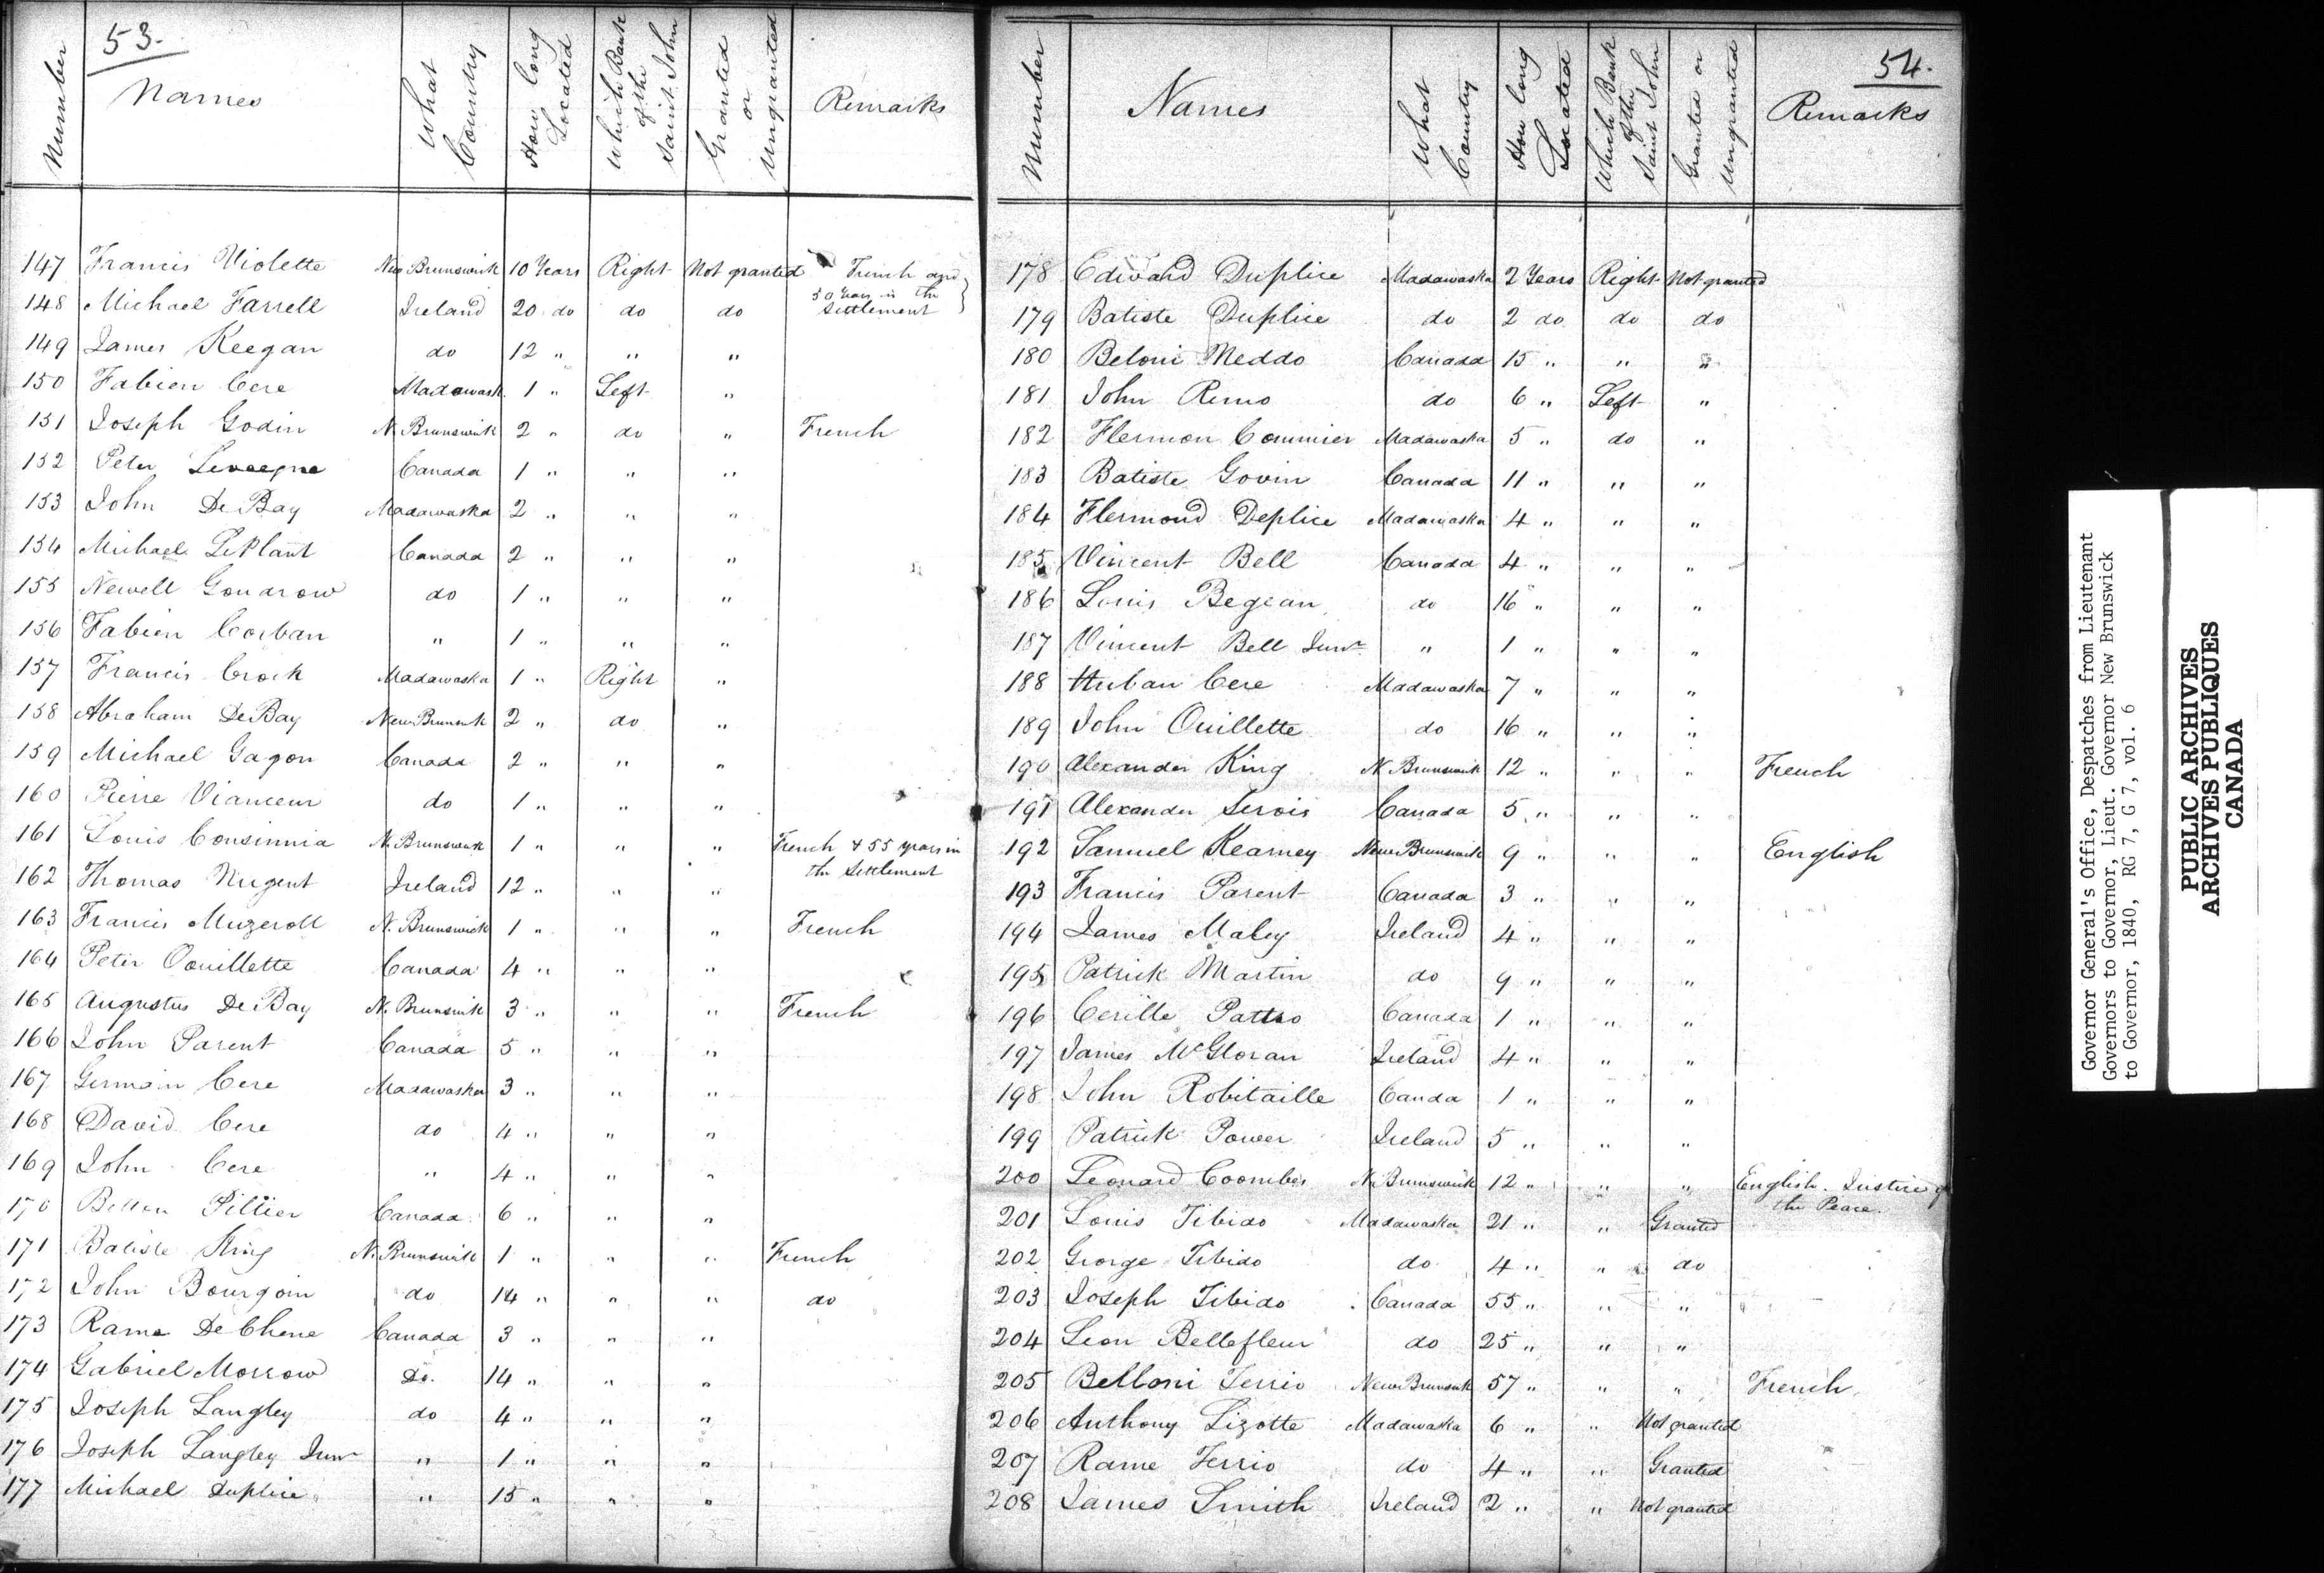 53.
Number Names What Country How long Located Which Bank of the Saint John Granted or Ungranted Remarks
147 Francis Violette New Brunswick 10 Years Right Not granted French and 50 Years in the Settlement
148 Michael Farrell Ireland 20 do do do
149 James Keegan do 12 " " "
150 Fabien Cere Madawask. 1 " Left "
151 Joseph Godin N. Brunswick 2 " do " French
152 Peter Canada 1 " " "
153 John De Bay Madawaska 2 " " "
154 Michael LePlant Canada 2 " " "
155 Newell Goudrow do 1 " " "
156 Fabien Corban " 1 " " "
157 Francis Crock Madawaska 1 " Right "
158 Abraham De Bay New Brunswk 2 " do "
159 Michael Gagon Canada 2 " " "
160 Pierre Vianceur do 1 " " "
161 Louis Consinnia N. Brunswick 1 " " " French & 55 years in the Settlement
162 Thomas Nugent Ireland 12 " " "
163 Francis Muzeroll N. Brunswick 1 " " " French
164 Peter Oouillette Canada 4 " " "
165 Augustus De Bay N. Brunswik 3 " " " French
166 John Parent Canada 5 " " "
167 Germain Cere Madawaska 3 " " "
168 David Cere do 4 " " "
169 John Cere " 4 " " "
170 Pillier Canada 6 " " "
171 Batiste King N. Brunswik 1 " " " French
172 John Bourgoin do 14 " " " do
173 Rame De Chene Canada 3 " " "
174 Gabriel Morrow Do. 14 " " "
175 Joseph Langley do 4 " " "
176 Joseph Langley Junr " 1 " " "
177 Michael Duplice " 15 " " "
54.
Number Names What Country How long Located Which Bank of the Saint John Granted or Ungranted Remarks
178 Edward Duplice Madawaska 2 Years Right Not granted
179 Batiste Duplice do 2 do do do
180 Beloni Meddo Canada 15 " " "
181 John Remo do 6 " Left "
182 Flermon Commier Madawaska 5 " do "
183 Batiste Govin Canada 11 " " "
184 Flermond Deplice Madawaska 4 " " "
185 Vincent Bell Canada 4 " " "
186 Louis Begean do 16 " " "
187 Vincent Bell Junr " 1 " " "
188 Huban Cere Madawaska 7 " " "
189 John Ouillette do 16 " " "
190 Alexander King N. Brunswik 12 " " " French
191 Alexander Serois Canada 5 " " "
192 Samuel Kearney New Brunswik 9 " " " English
193 Francis Parent Canada 3 " " "
194 James Maley Ireland 4 " " "
195 Patrick Martin do 9 " " "
196 Cerille Pattro Canada 1 " " "
197 James McGloran Ireland 4 " " "
198 John Robitaille Canda 1 " " "
199 Patrick Power Ireland 5 " " "
200 Leonard Coombes N. Brunswick 12 " " " English. Justice of the Peace.
201 Louis Tibido Madawaska 21 " " Granted
202 George Tibido do 4 " " do
203 Joseph Tibido Canada 55 " " "
204 Leon Bellefleur do 25 " " "
205 Belloni Terrio New Brunswk 57 " " " French
206 Anthony Lizotte Madawaska 6 " " Not granted
207 Rame Terrio do 4 " " Granted
208 James Smith Ireland 2 " " Not granted
Governor General's Office, Despatches from Lieutenant
Governors to Governor, Lieut. Governor New Brunswick
to Governor, 1840, RG 7, G 7, vol. 6
PUBLIC ARCHIVES
ARCHIVES PUBLIQUES
CANADA